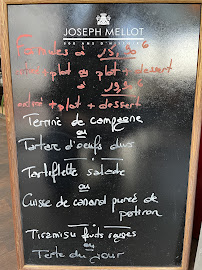 JOSEPH MELLOT
Formules à 15,90€
entrée + plat ou plat + dessert
à 19,90€
entrée + plat + dessert
Terrine de campagne
ou
Tartare d'oeufs durs
Tartiflette salade
ou
Cuisse de canard purée de
potiron
Tiramisu fruits rouges
ou
Tarte du jour